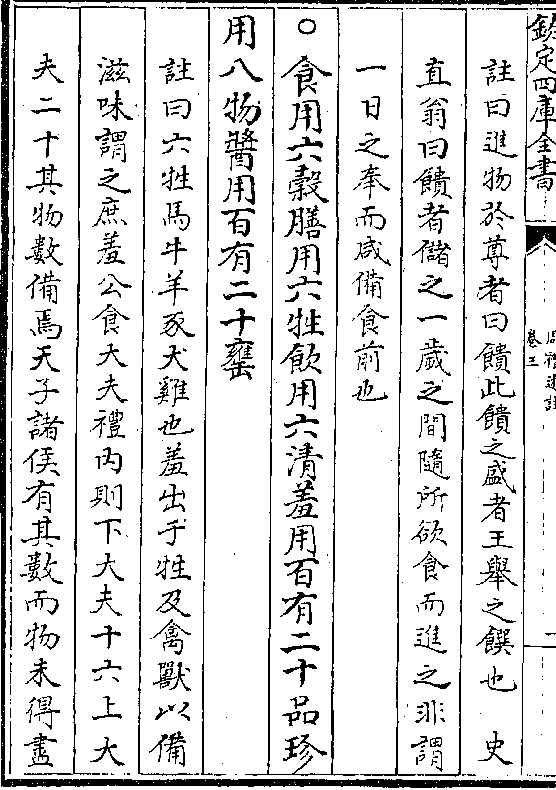 欽定四庫全書
卷三
註曰進物於尊者曰饋此饋之盛者王舉之饌也　史
直翁曰饋者儲之一歲之間隨所欲食而進之非謂
一日之奉而咸備食前也
○食用六穀膳用六牲飲用六清羞用百有二十品珍
用八物醬用百有二十罋
註曰六牲馬牛羊豕犬雞也羞出于牲及禽獸以備
滋味謂之庶羞公食大夫禮内則下大夫十六上大
夫二十其物數備焉天子諸侯有其數而物未得盡